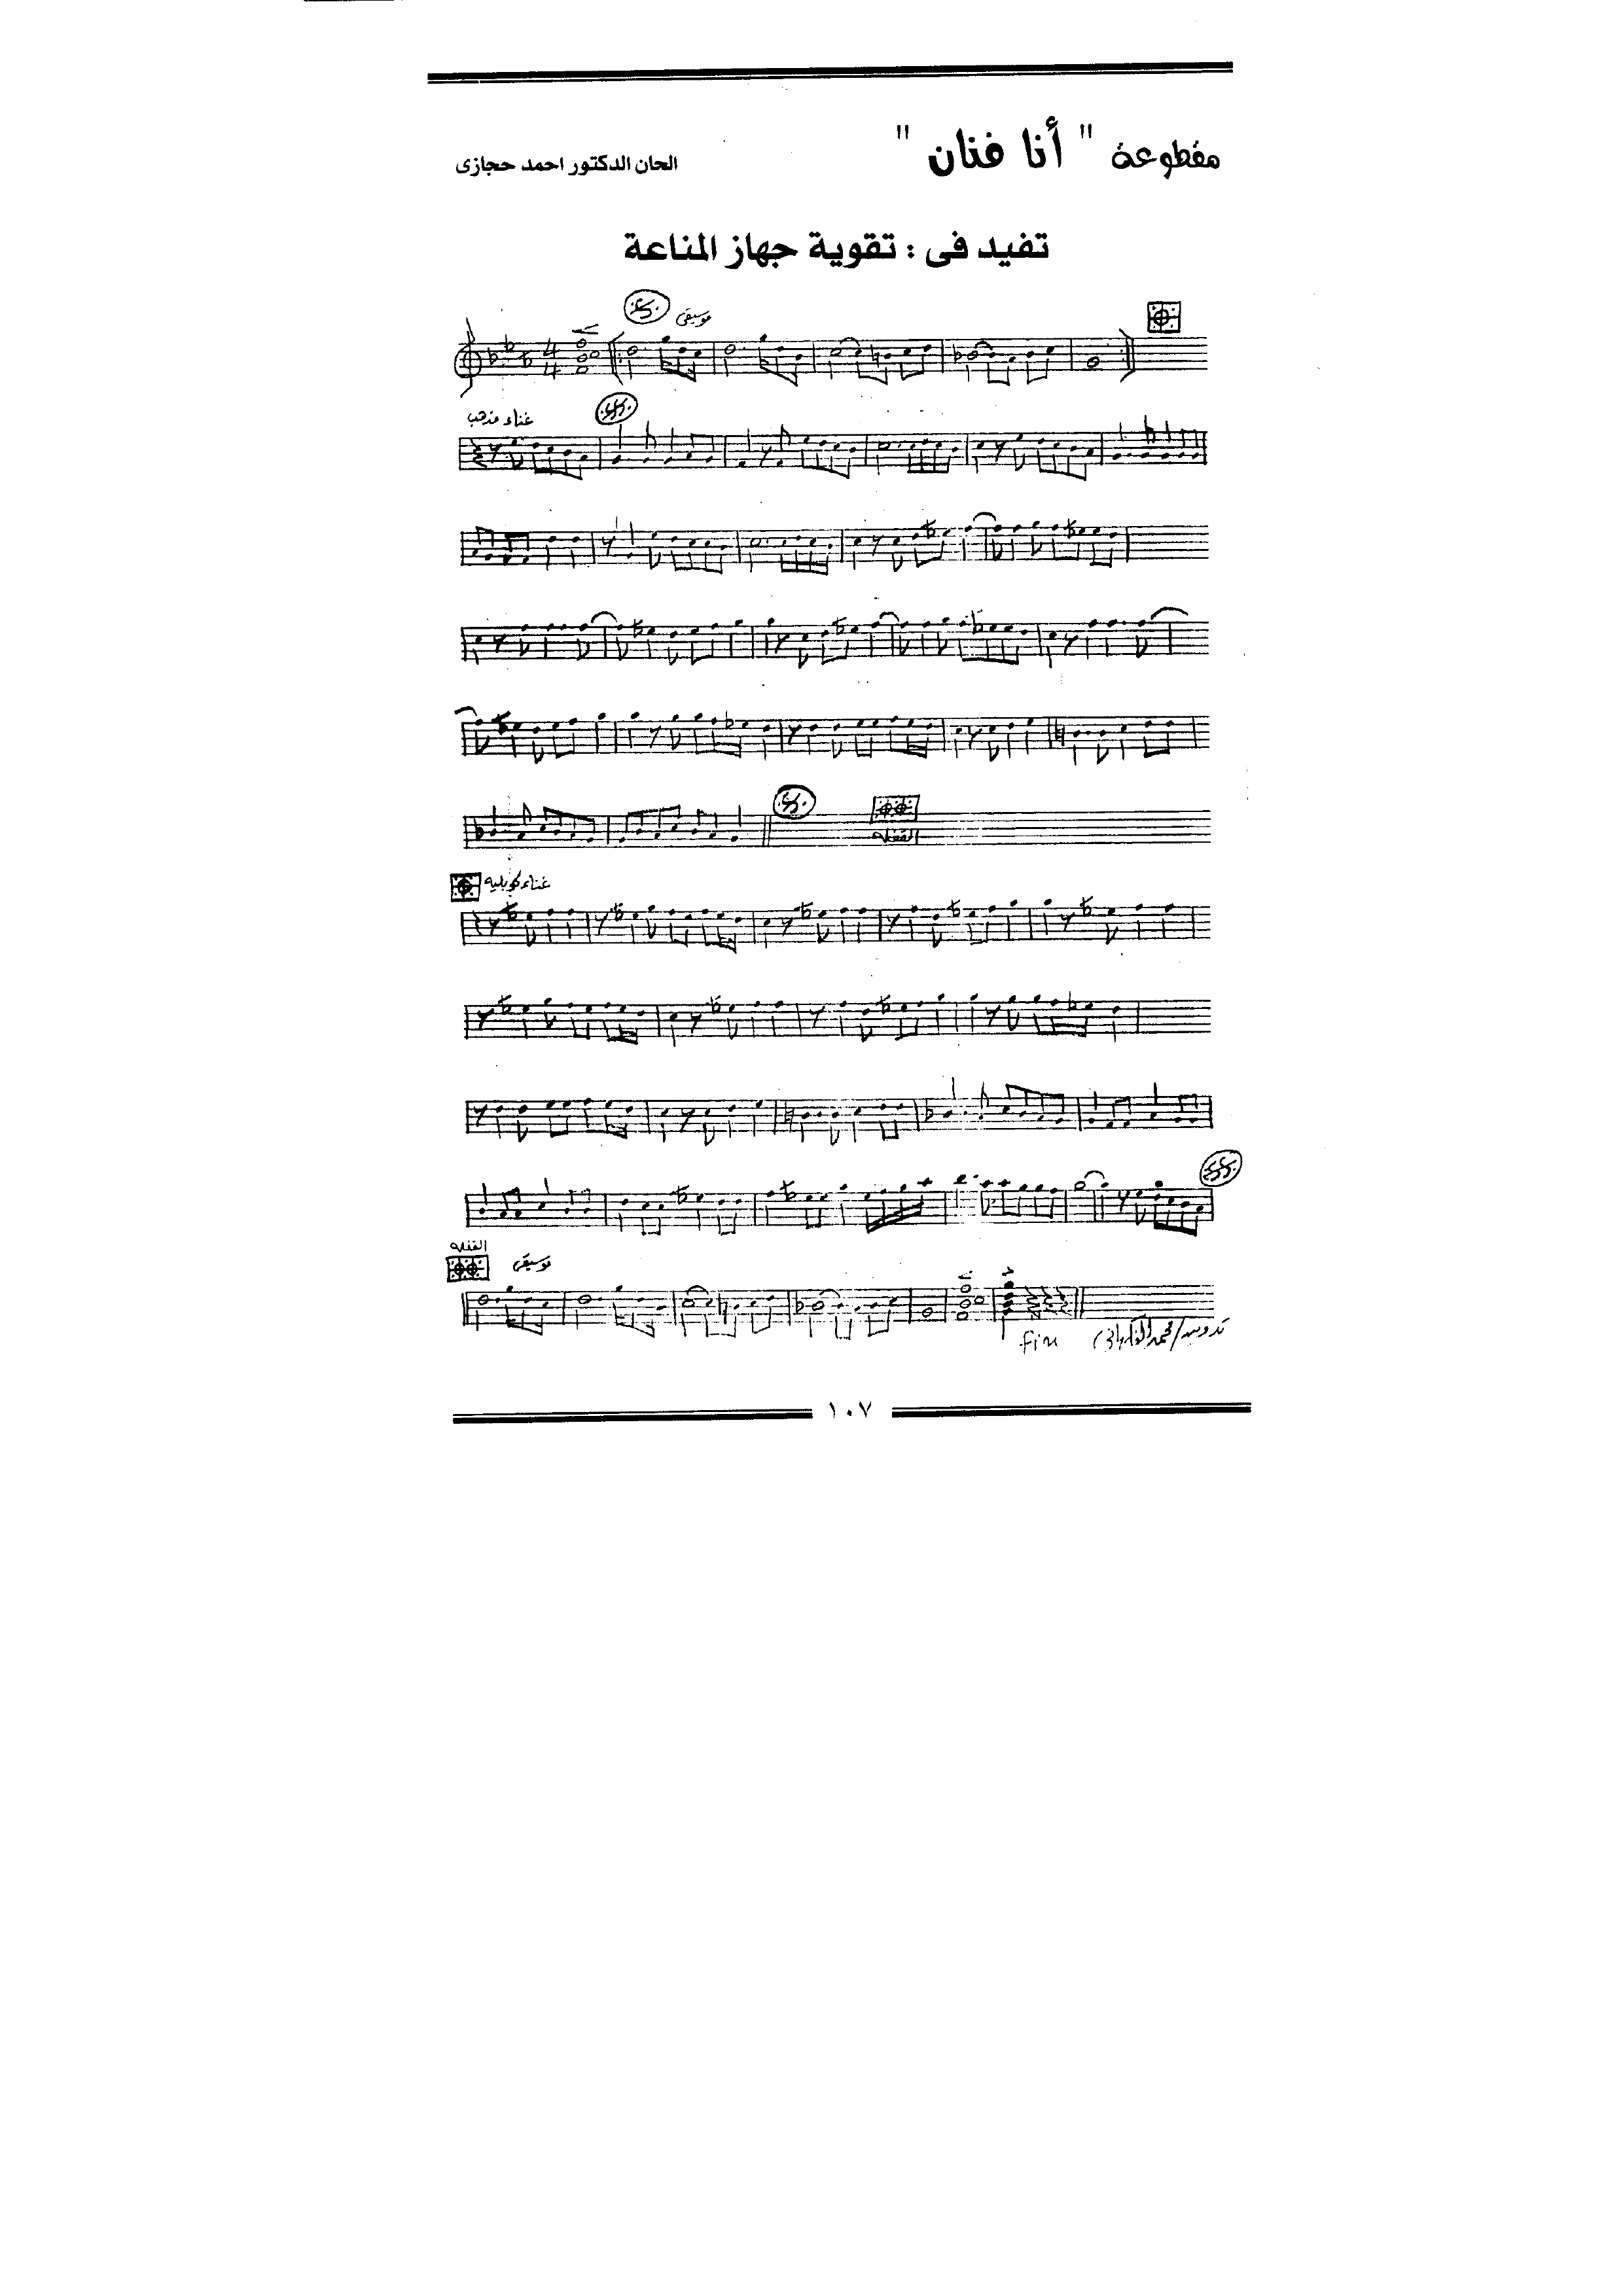 مقطوعة " أنا فنان "
الحان الدكتور احمد حجازى
تفيد فى : تقوية جهاز المناعة
موسيقى
4
4
غناء مذهب
القفله
غناء كوبليه
القفله
موسيقى
fin
١٠٧